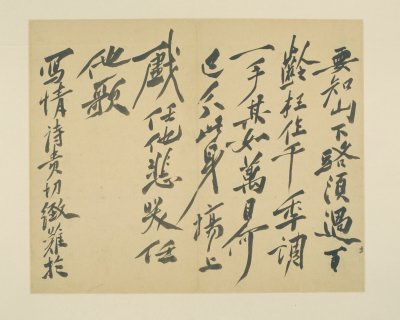 要知山下路須過百
齡枉作千年調
一手其如萬目何
已分此身場上
戲任他悲哭任
他歌
寫情詩貴切緻難於